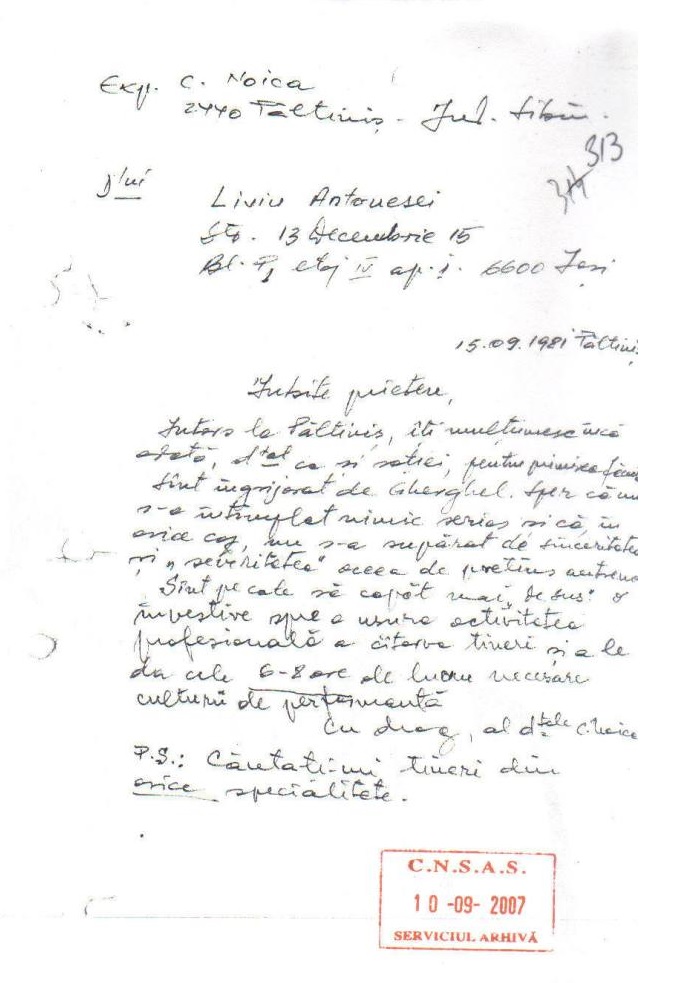 Exp. C. Noica
2440 Păltiniș - Jud. Sibiu.
313
314
D'lui
Liviu Antonesei
Str. 13 Decembrie 15
Bl. P, etaj IV ap. 1. 6600 Iași
15.09.1981 Păltiniș
Iubite prietene,
Întors la Păltiniș, îți mulțumesc încă
odată, d'tale ca și soției, pentru primirea făcută
Sînt îngrijorat de Gherghel. Sper că nu
s-a întîmplat nimic serios și că, în
orice caz, nu s-a supărat de sinceritatea
și „severitatea" aceea de pretins antrenor
Sînt pe cale să capăt mai „de sus" o
învestire spre a ușura activitatea
profesională a cîtorva tineri și a le
da cele 6-8 ore de lucru necesare
culturii de performanță
Cu drag, al d-tale C. Noica
P.S.: Căutați-mi tineri din
orice specialitate.
C.N.S.A.S.
10 -09- 2007
SERVICIUL ARHIVĂ